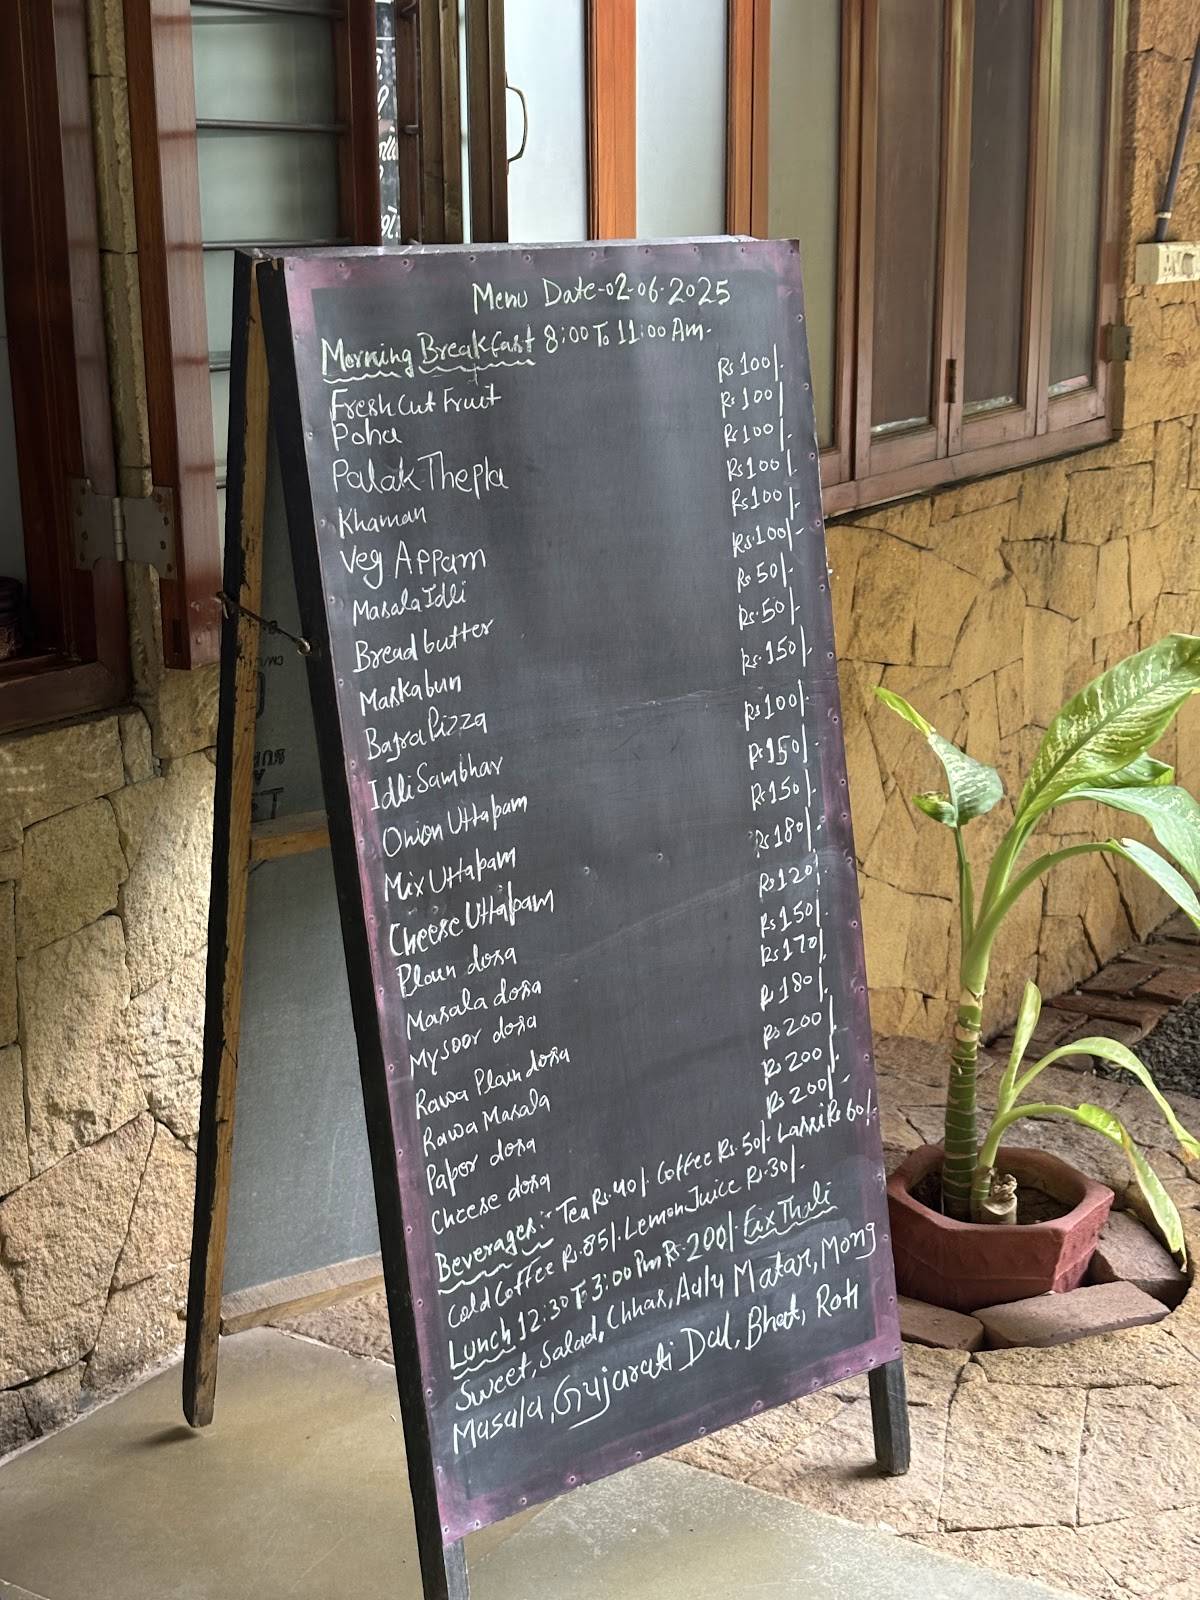 Menu Date-02-06-2025
Morning Breakfast 8:00 To 11:00 Am-
Fresh Cut Fruit Rs 100/-
Poha Rs 100/
Palak Thepla Rs 100/-
Khaman Rs 100/-
Veg Appam Rs. 100/-
Masala Idli Rs. 100/-
Bread butter Rs 50/-
Maska bun Rs. 50/-
Bajra Pizza Rs. 150/-
Idli Sambhar Rs 100/-
Onion Uttapam Rs 150/-
Mix Uttapam Rs 150/-
Cheese Uttapam Rs 180/-
Plain dosa Rs 120/-
Masala dosa Rs 150/-
Mysoor dosa Rs 170/-
Rawa Plain dosa Rs 180/-
Rawa Masala Rs 200/
Papor dosa Rs 200/
Cheese dosa Rs 200/-
Beverages:- Tea Rs. 40/- Coffee Rs. 50/- Lassi Rs 60/-
Cold Coffee Rs. 85/- Lemon Juice Rs. 30/-
Lunch 12:30 To 3:00 Pm Rs. 200/- Fix Thali
Sweet, Salad, Chhas, Matar, Mong
Masala, Gujarati Dal, Bhat, Roti